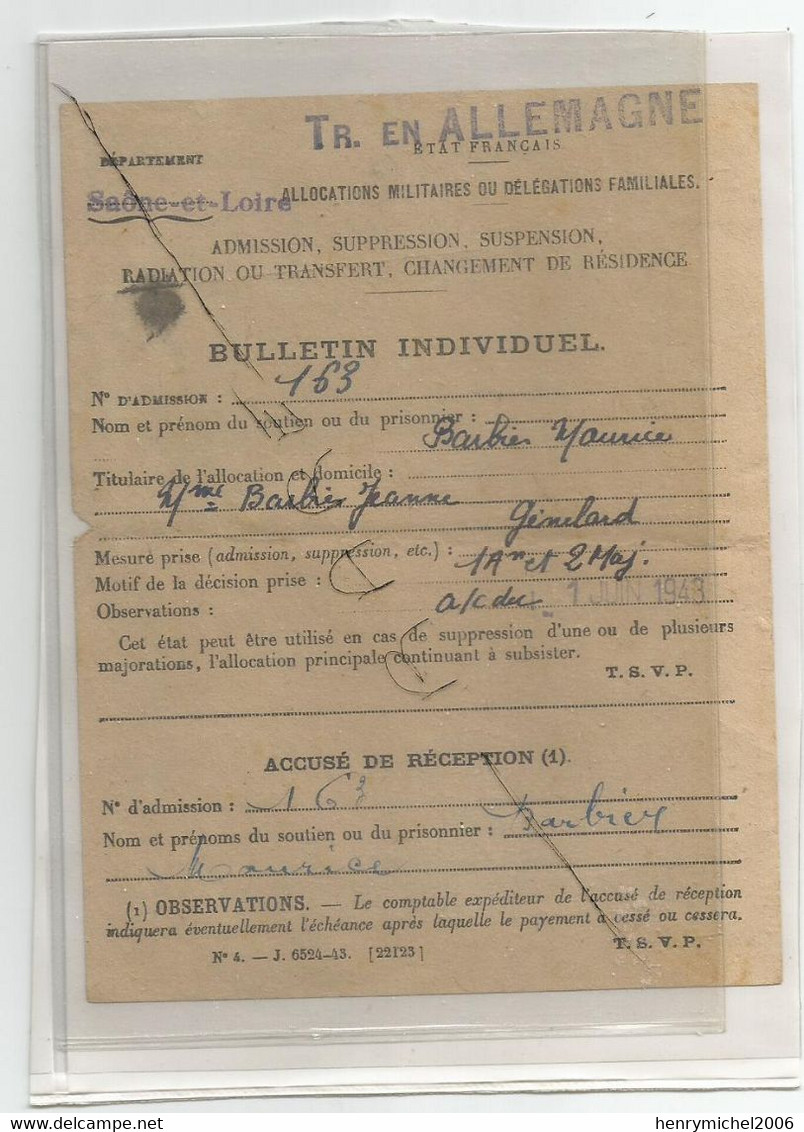 TR. EN ALLEMAGNE
ÉTAT FRANÇAIS
DÉPARTEMENT
Saône-et-Loire
ALLOCATIONS MILITAIRES OU DÉLÉGATIONS FAMILIALES.
ADMISSION, SUPPRESSION, SUSPENSION,
RADIATION OU TRANSFERT, CHANGEMENT DE RÉSIDENCE
BULLETIN INDIVIDUEL.
N° D'ADMISSION : 163
Nom et prénom du soutien ou du prisonnier :
Barbier Maurice
Titulaire de l'allocation et domicile :
Mme Barbier Jeanne
Génelard
Mesure prise (admission, suppression, etc.) : 1 An et 2 Maj.
Motif de la décision prise :
Observations : a/c du 1 JUIN 1943
Cet état peut être utilisé en cas de suppression d'une ou de plusieurs
majorations, l'allocation principale continuant à subsister.
T. S. V. P.
ACCUSÉ DE RÉCEPTION (1).
N° d'admission : 163
Nom et prénoms du soutien ou du prisonnier : Barbier
Maurice
(1) OBSERVATIONS. — Le comptable expéditeur de l'accusé de réception
indiquera éventuellement l'échéance après laquelle le payement a cessé ou cessera.
T. S. V. P.
N° 4. — J. 6524-43. [22123]
henrymichel2006